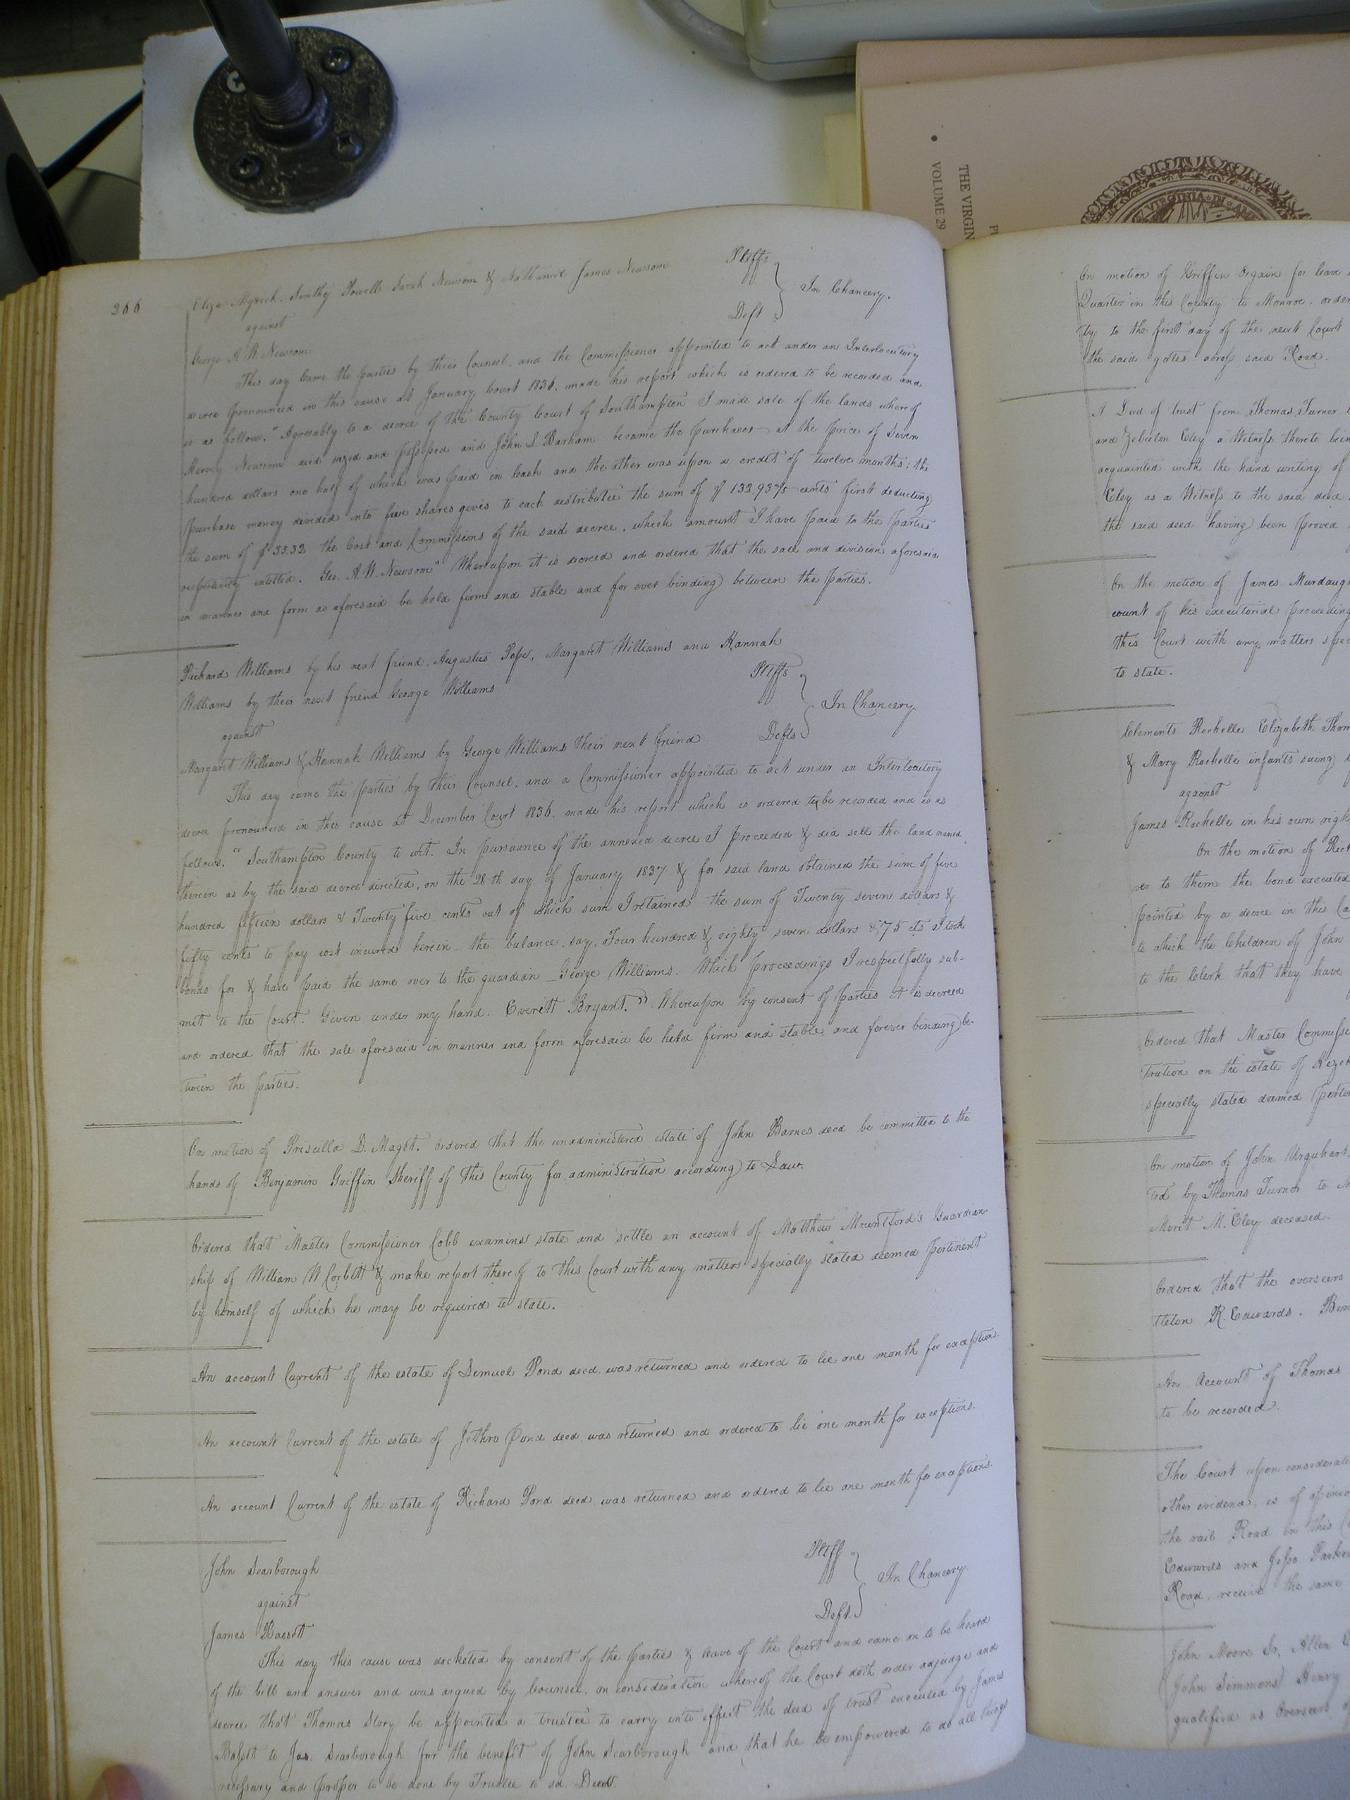 THE VIRGIN
VOLUME 29
VIRGINIA
366
Eliza Myrick, Powell Sarah Newsom & Nathaniel James Newsom Pltffs
against
In Chancery.
George A. W. Newsom Deft
This day came the parties by their Counsel, and the Commissioner appointed to act under an Interlocutory
decree pronounced in this cause at January Court 1836, made his report which is ordered to be recorded and
is as follow. "Agreeably to a decree of the County Court of Southampton I made sale of the lands whereof
Newsom died siezed and possessed and John S. Barham became the purchaser at the price of Seven
hundred dollars one half of which was paid in Cash and the other was upon a credit of twelve months; the
purchase money devided into five shares gives to each distributee the sum of $ 132.93⅗ cents first deducting
the sum of $ 35.32 the Cost and Commissions of the said decree, which amount I have paid to the parties
respectively entitled. Geo. A. W. Newsom" Whereupon it is decreed and ordered that the sale and division aforesaid
in manner and form as aforesaid be held firm and stable and for ever binding between the parties.
Richard Williams by his next friend, Augustus Pope, Margaret Williams and Hannah
Williams by their next friend George Williams Pltffs
against
In Chancery
Margaret Williams & Hannah Williams by George Williams their next friend Defts
This day came the parties by their Counsel, and a Commissioner appointed to act under an Interlocutory
decree pronounced in this cause at December Court 1836, made his report which is ordered to be recorded and is as
follows. "Southampton County to wit. In pursuance of the annexed decree I proceeded & did sell the land named
therein as by the said decree directed, on the 28th day of January 1837 & for said land obtained the sum of five
hundred fifteen dollars & Twenty five cents out of which sum I retained the sum of Twenty seven dollars &
fifty cents to pay cost incurred herein - the balance, say, Four hundred & eighty seven dollars & 75 cts I took
bonds for & have paid the same over to the guardian George Williams. Which proceedings I respectfully sub-
mit to the Court. Given under my hand. Everett Bryant." Whereupon by consent of parties it is decreed
and ordered that the sale aforesaid in manner and form aforesaid be held firm and stable and forever binding be-
tween the parties.
On motion of Priscilla D. Maget, ordered that the unadministered estate of John Barnes decd be committed to the
hands of Benjamin Griffin Sheriff of this County for administration according to Law.
Ordered that Master Commissioner Cobb examine state and settle an account of Matthew Mountford's Guardian-
ship of William N Corbitt & make report thereof to this Court with any matters specially stated deemed pertinent
by himself of which he may be required to state.
An account Current of the estate of Lemuel Pond decd was returned and ordered to lie one month for exceptions.
An account Current of the estate of Jethro Pond decd was returned and ordered to lie one month for exceptions.
An account Current of the estate of Richard Pond decd was returned and ordered to lie one month for exceptions.
John Scarborough Pltff
against
In Chancery.
James Bassett Deft.
This day this cause was docketed by consent of the parties & leave of the Court and came on to be heard
of the bill and answer and was argued by Counsel, on consideration whereof the Court doth order adjudge and
decree that Thomas Story be appointed a trustee to carry into effect the deed of trust executed by James
Bassett to Jas. Scarborough for the benefit of John Scarborough and that he be empowered to do all things
necessary and proper to be done by Trustee in sd. Deed.
On motion of Griffin Orgain for leave
Quarter in this County to Monroe, order
ty to the first day of the next Court
the said gates across said Road.
A Deed of trust from Thomas Turner
and Zebulon Cloy a Witness thereto bein
acquainted with the hand writing of
Cloy as a Witness to the said deed
the said deed having been proved
On the motion of James Murdaugh
count of his executorial proceeding
this Court with any matters spec
to state.
Clements Rochelle Elizabeth Thom
& Mary Rochelle infants suing
against
James Rochelle in his own right
On the motion of
to them the bond executed
pointed by a decree in this Ca
to which the Children of John
to the Clerk that they have
Ordered that Master Commisse
tration on the estate of
specially stated deemed pertin
On motion of John Urquhart
ted by Thomas Turner to
M. Cloy deceased.
Ordered that the overseers
R. Edwards.
An Account of Thomas
to be recorded.
The Court upon consideration
other evidence, is of opinion
the rail Road in this C
Edwards and Jesse Parker
Road, receive the same
John Moore Sr, Allen
John Simmons Henry
qualified as Overseers